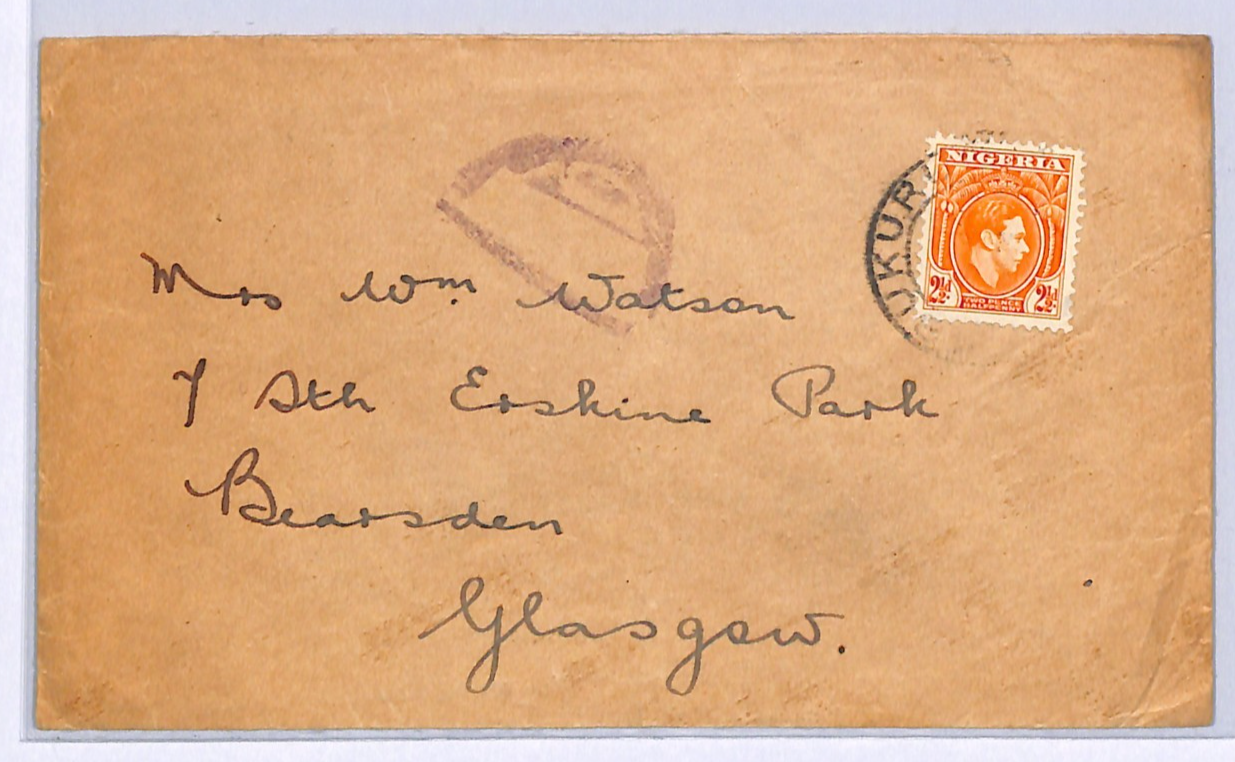 NIGERIA
2½d.
2½d.
TWO PENCE
HALFPENNY
BUKURU
Mrs Wm. Watson
7 Sth Erskine Park
Bearsden
Glasgow.